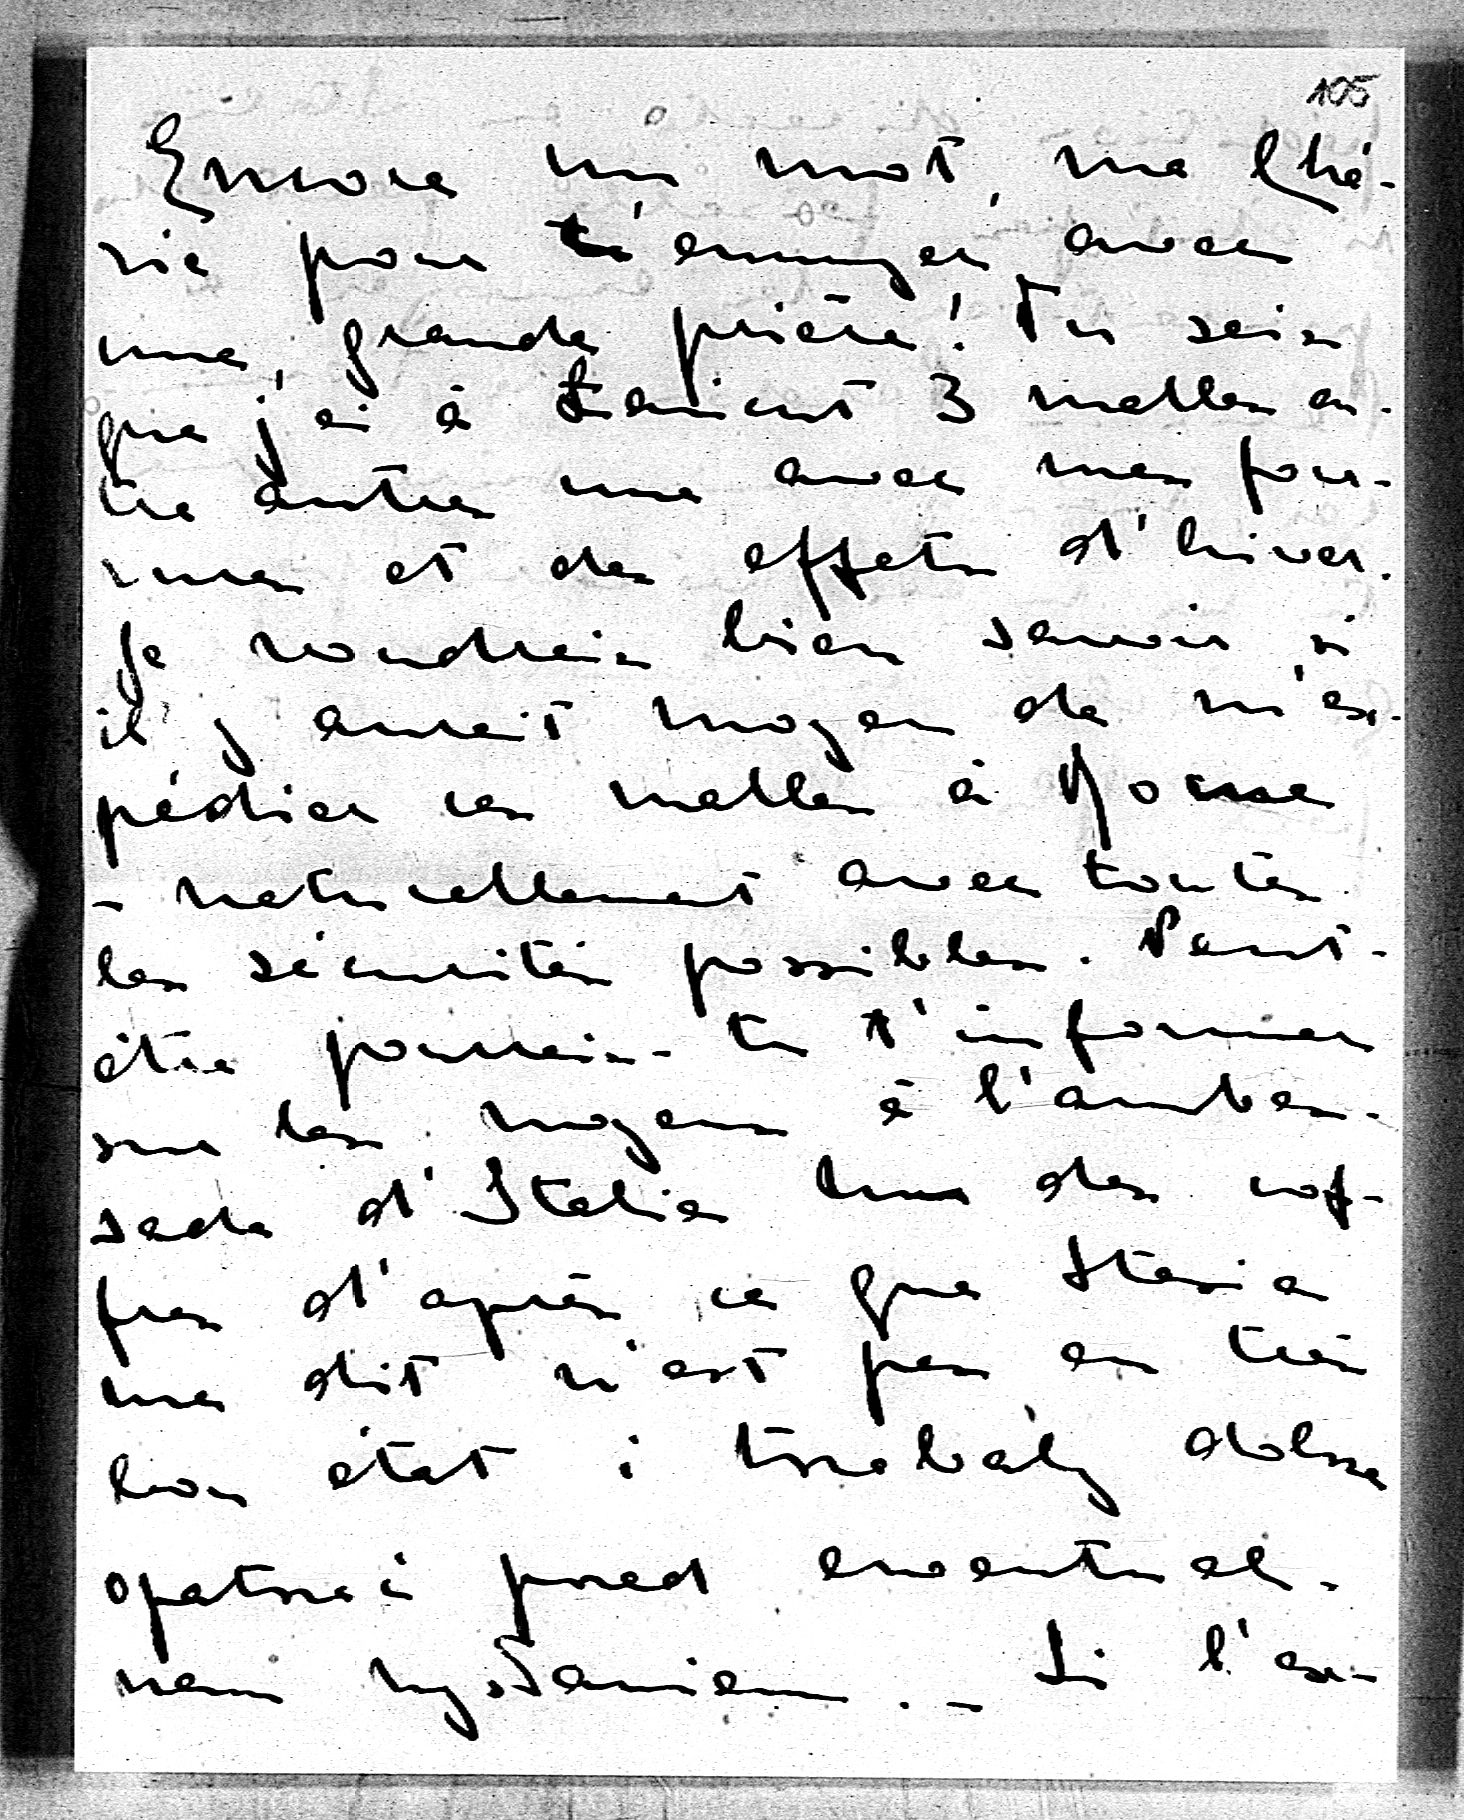 105
Encore un mot, ma Ché-
rie pour t'ennuyer avec
une grande prière! Tu sais
que j'ai à Łańcut 3 malles en-
tre autres une avec mes four-
rures et des effets d'hiver.
Je voudrais bien savoir, si
il y aurait moyen de m'ex-
pédier ces malles à
- naturellement avec toutes
les sécurités possibles. Peut-
être pourrais-tu t'informer
sur les moyens à l'ambas-
sade d'Italie. Un des cof-
fres d'après ce que Stasia
me dit n'est pas en très
bon état i trzebaby dobrze
opatrzeć przed ewentual-
nem wysłaniem. - Si l'ex-